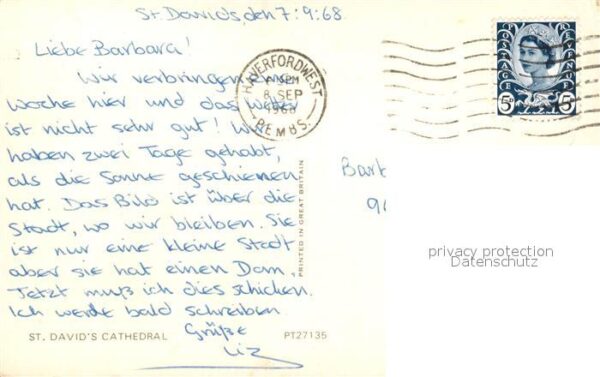 St. David's, den 7.9.68.
Liebe Barbara!
Wir verbringen eine
Woche hier und das Wetter
ist nicht sehr gut! Wir
haben zwei Tage gehabt,
als die Sonne geschienen
hat. Das Bild ist über die
Stadt, wo wir bleiben. Sie
ist nur eine kleine Stadt
aber sie hat einen Dom.
Jetzt muß ich dies schicken.
Ich werde bald schreiben
Grüße
Liz
ST. DAVID'S CATHEDRAL
PT27135
PRINTED IN GREAT BRITAIN
HAVERFORDWEST
8 SEP
1968
PEMBS.
POSTAGE REVENUE
5D 5D
Barb
privacy protection
Datenschutz